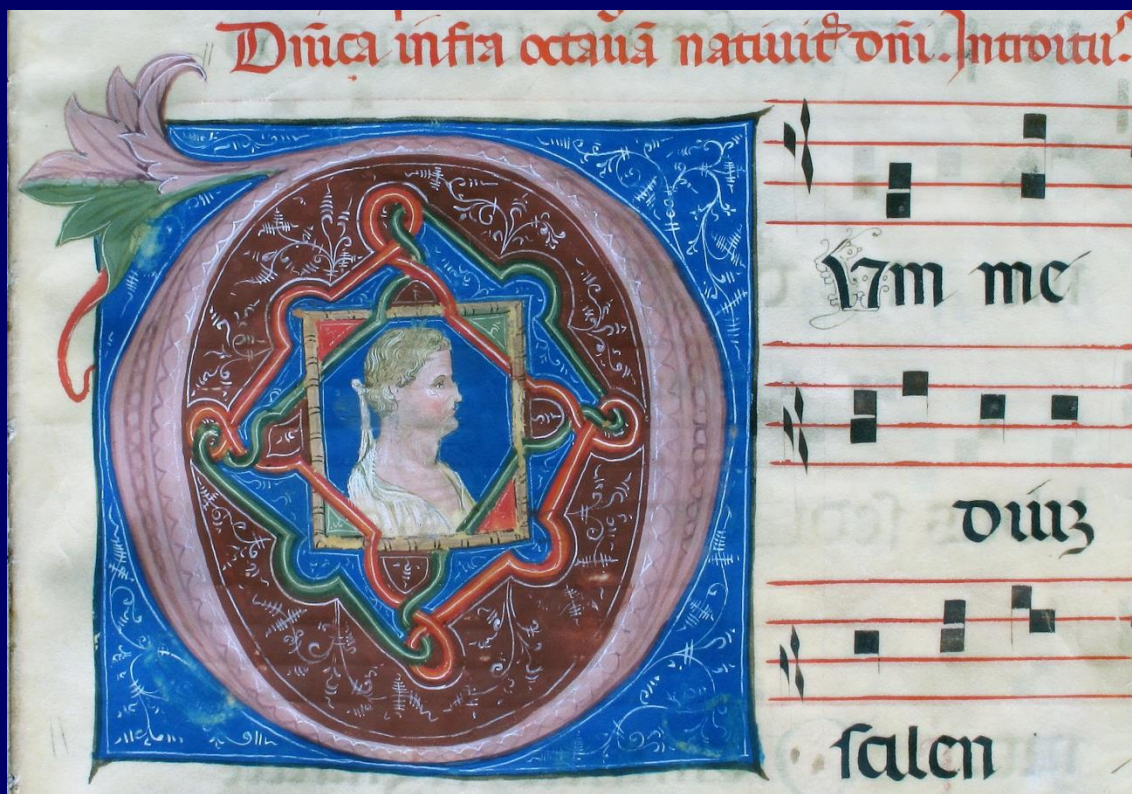 Dñica infra octauã natiuit᷑ dñi. Introitu᷑.
DVm me
diuꝫ
ſcilen